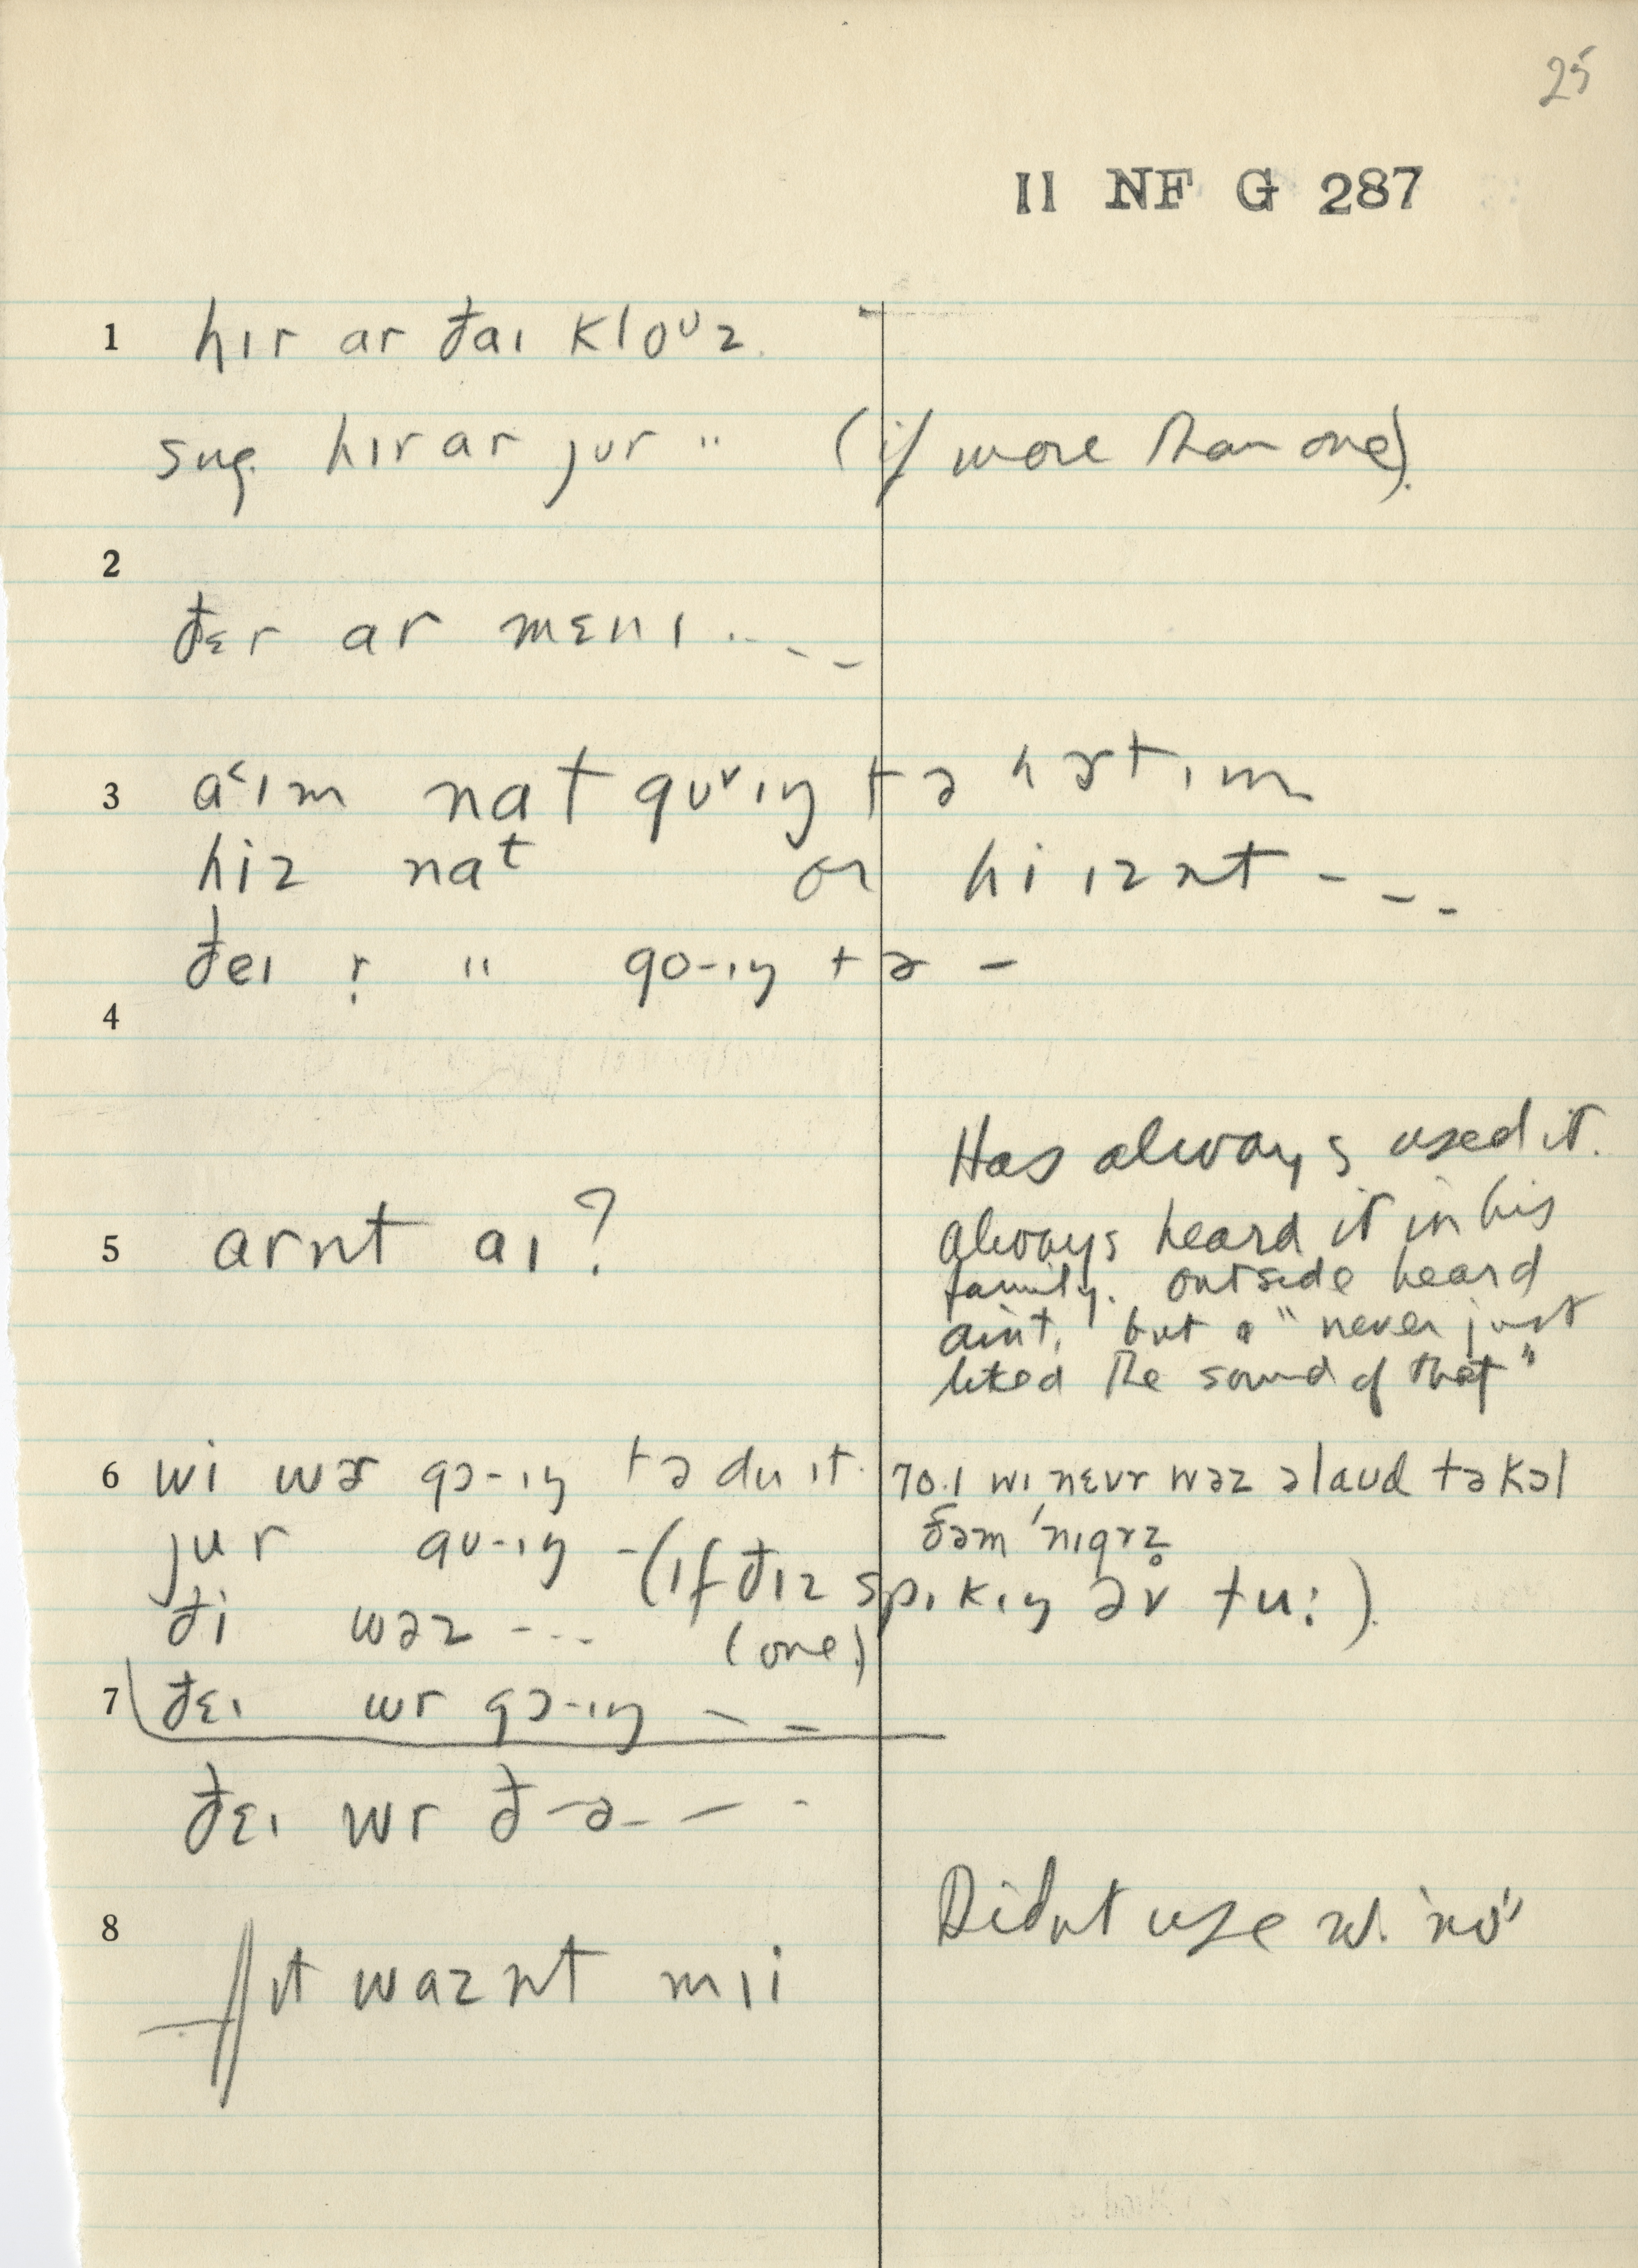 25
II NF G 287
1 hɪr ar đaɪ kloᴜz.
sug. hɪr ar jʊr " (if more than one).
2
đɛr ar mɛnɪ . - -
3 a˂ɪm nat gʊᵛɪŋ tə hɚt ɪm
hiz naᵗ or hi ɪznt - - -
đeɪ r̩ " go-ɪŋ tə -
4
Has always used it.
always heard it in his
5 arnt aɪ?
family. outside heard
aint, but "never just
liked the sound of that"
6 wi wɚ gɔ-ɪŋ tə du ɪt. 70.1 wɪ nɛvr wəz əlaud tə kɔl
jur gʊ-ɪŋ - đəm 'nɪgrz̥
(ɪf đɪz spɪkɪŋ əv tu:).
đi wəz - - - (one)
7 đɛɪ wr gɔ-ɪŋ - -
đɛɪ wr đ-ə- - -
8 Didnt use w. "no"
ɪt waznt mɪi